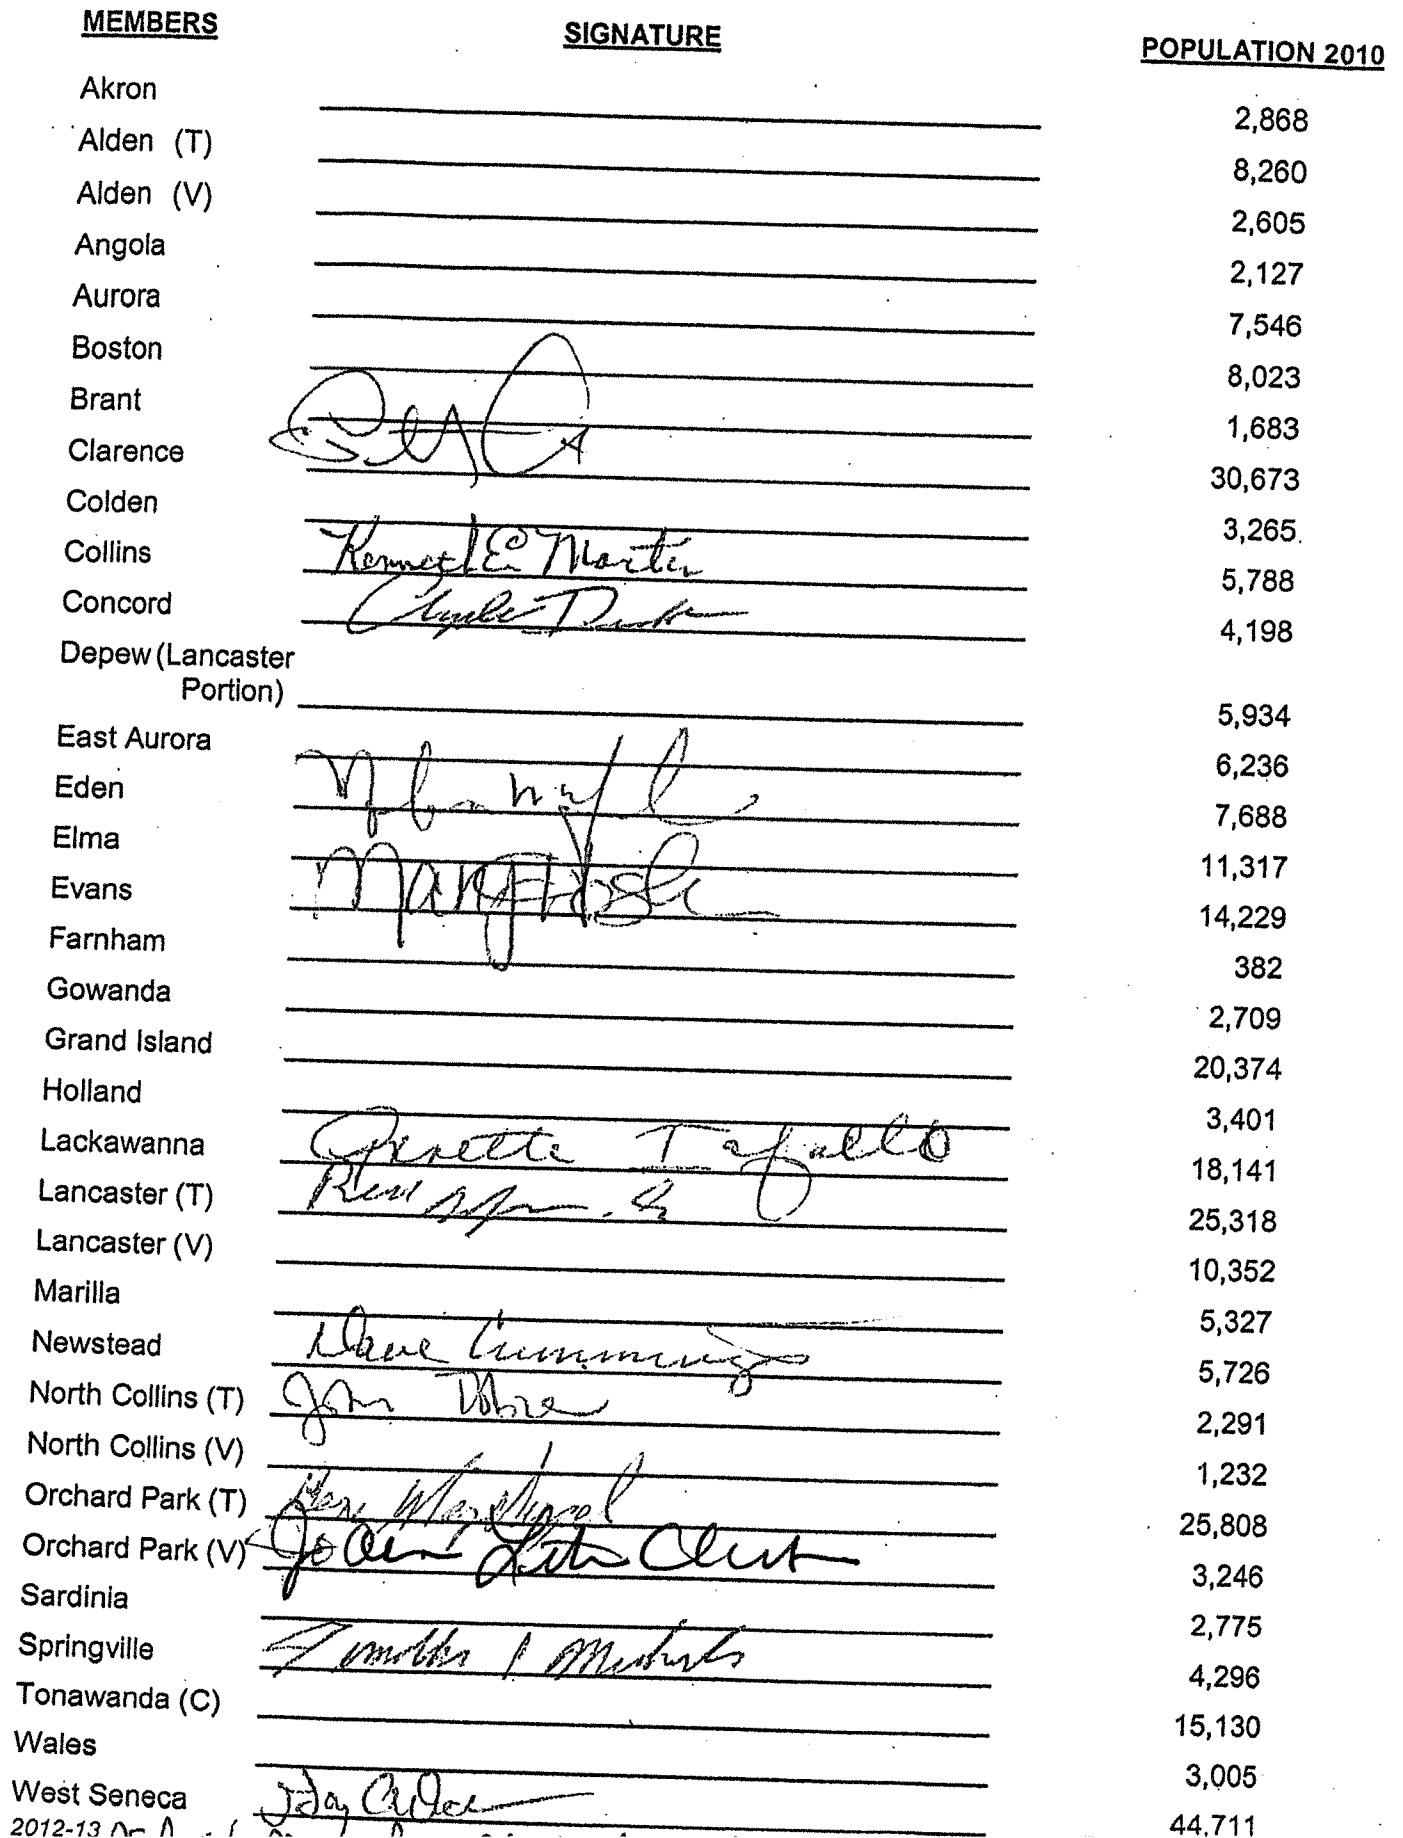 MEMBERS SIGNATURE POPULATION 2010
Akron 2,868
Alden (T) 8,260
Alden (V) 2,605
Angola 2,127
Aurora 7,546
Boston 8,023
Brant 1,683
Clarence 30,673
Colden 3,265
Collins Kenneth E. Martin 5,788
Concord Clyde 4,198
Depew (Lancaster
Portion) 5,934
East Aurora 6,236
Eden 7,688
Elma 11,317
Evans Mary 14,229
Farnham 382
Gowanda 2,709
Grand Island 20,374
Holland 3,401
Lackawanna Annette Iafallo 18,141
Lancaster (T) 25,318
Lancaster (V) 10,352
Marilla 5,327
Newstead Dave Cummings 5,726
North Collins (T) John 2,291
North Collins (V) 1,232
Orchard Park (T) 25,808
Orchard Park (V) Jo Ann Litwin Clinton 3,246
Sardinia 2,775
Springville Timothy Michaels 4,296
Tonawanda (C) 15,130
Wales 3,005
West Seneca 44,711
2012-13